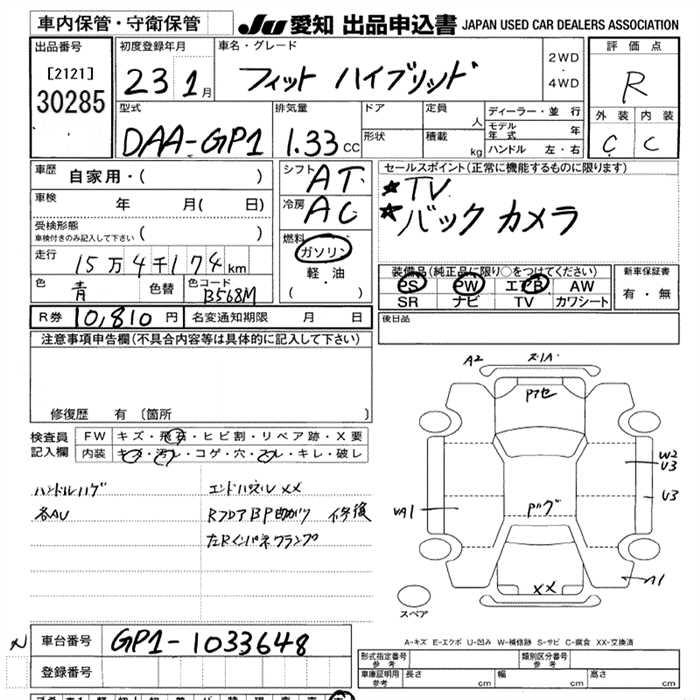 車内保管・守衛保管
JU 愛知 出品申込書 JAPAN USED CAR DEALERS ASSOCIATION
出品番号
[2121]
30285
初度登録年月
23 1月
車名・グレード
フィット ハイブリッド
2WD
・
4WD
評価点
R
外装 内装
C C
型式
DAA-GP1
排気量
1.33 cc
ドア
形状
定員 人
積載 kg
ディーラー・並行
モデル年式 年
ハンドル 左・右
車歴
自家用・( )
車検 年 月( 日)
受検形態
車検付きのみ記入して下さい ( )
走行 15万4千174km
色 青 色替 色コード B568M
シフト AT
冷房 AC
燃料
ガソリン
軽・油
( ・ )
セールスポイント(正常に機能するものに限ります)
★TV
★バック カメラ
装備品(純正品に限り○をつけてください)
PS PW エアB AW
SR ナビ TV カワシート
新車保証書
有・無
R券 10,810円 名変通知期限 月 日
後日品
注意事項申告欄(不具合内容等は具体的に記入して下さい)
修復歴 有 〔箇所 〕
検査員記入欄
FW キズ・飛石・ヒビ割・リペア跡・X要
内装 キズ・汚レ・コゲ・穴・スレ・キレ・破レ
ハンドルハゲ
各AU
エンドパネルXX
RフロアBP曲がり 修復
左Rインパネクランプ
A2
Pアゼ
W2
U3
U3
UA1
Pッグ
XX
A1
スペア
A-キズ E-エクボ U-凹み W-補修跡 S-サビ C-腐食 XX-交換済
車台番号 GP1-1033648
登録番号
型式指定番号 参考
類別区分番号 参考
車庫証明用 参考
長さ cm
幅 cm
高さ cm